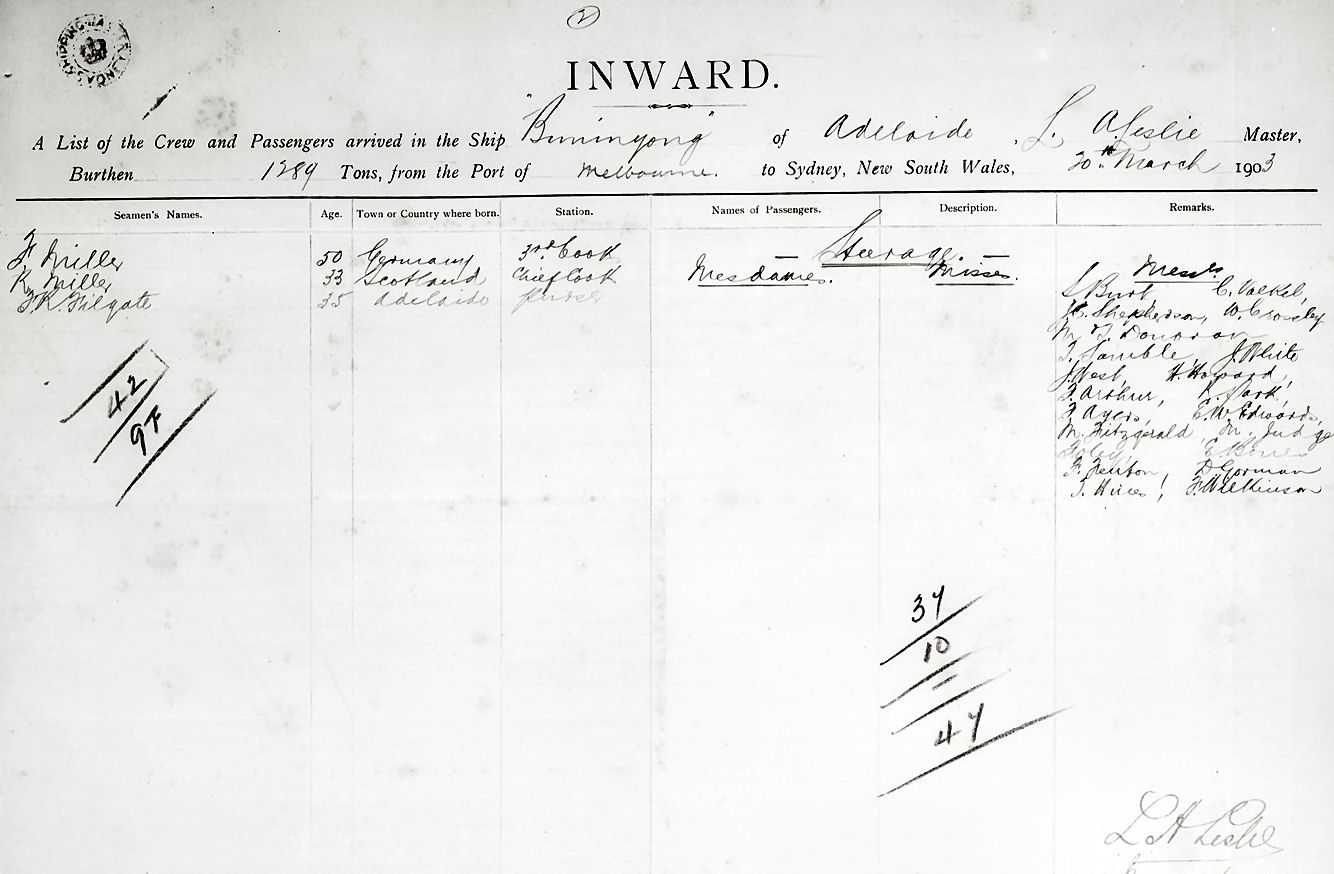 2
SHIPPING MASTER
INWARD.
A List of the Crew and Passengers arrived in the Ship "Buninyong" of Adelaide, L. A Leslie Master,
Burthen 1289 Tons, from the Port of Melbourne. to Sydney, New South Wales, 20th March 1903
Seamen's Names. Age. Town or Country where born. Station. Names of Passengers. Description. Remarks.
Steerage
F Miller 50 Germany 3rd Cook Mesdames. Misses. Messrs
R Miller 33 Scotland Chief Cook
F. R. Filgate 35 Adelaide Purser
S Burt, C. Valkel,
Shepherdson, W. Crossley
M T. Donovan
T. Gamble, J. White
J. West, H. Howard,
F. Arthur, R. Park,
F. Ayers, E. W. Edwards,
M. Fitzgerald, M. Judge
Foley, E. Bones
F. Fenton, D Gorman
T. Hines, F. Wilkinson
42
97
37
10
47
L A Leslie